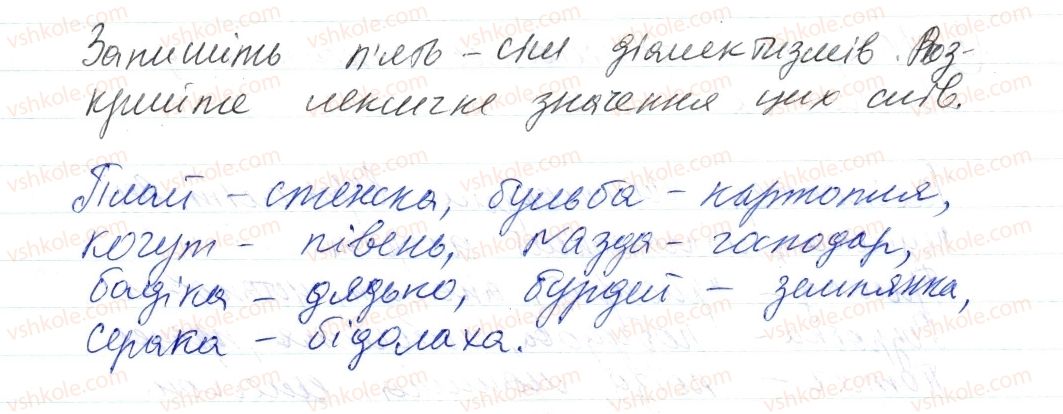 Запишіть п'ять – сім діалектизмів. Роз-
крийте лексичне значення цих слів.
Плай – стежка, бульба – картопля,
когут – півень, ґазда – господар,
бадіка – дядько, бурдей – землянка,
серака – бідолаха.